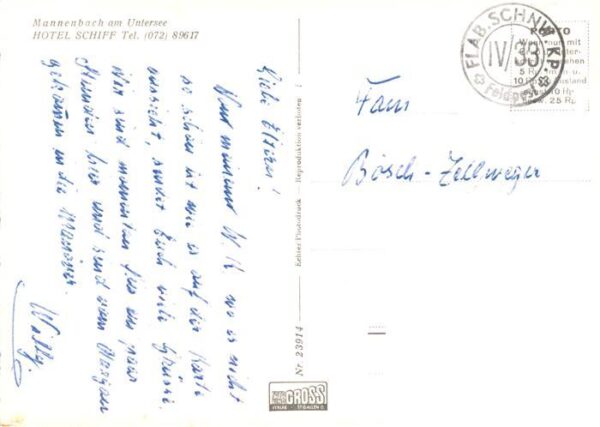 Mannenbach am Untersee
HOTEL SCHIFF Tel. (072) 89617
Liebe Eltern!
Von meinem W.K. wo es nicht
so schön ist wie es auf der Karte
aussieht, sendet Euch viele Grüsse
Wir sind momentan für ein paar
Stunden hier und sind vom Aargau
gekommen in die Manöver.
Willy.
Nr. 23914 Echter Photodruck - Reproduktion verboten !
GROSS
VERLAG ST. GALLEN
FLAB. SCHNW. KP.
IV/33
Feldpost
PORTO
mit
5 Rp.
10 Rp.
10 Rp.
25 Rp.
Fam
Bösch-Zellweger